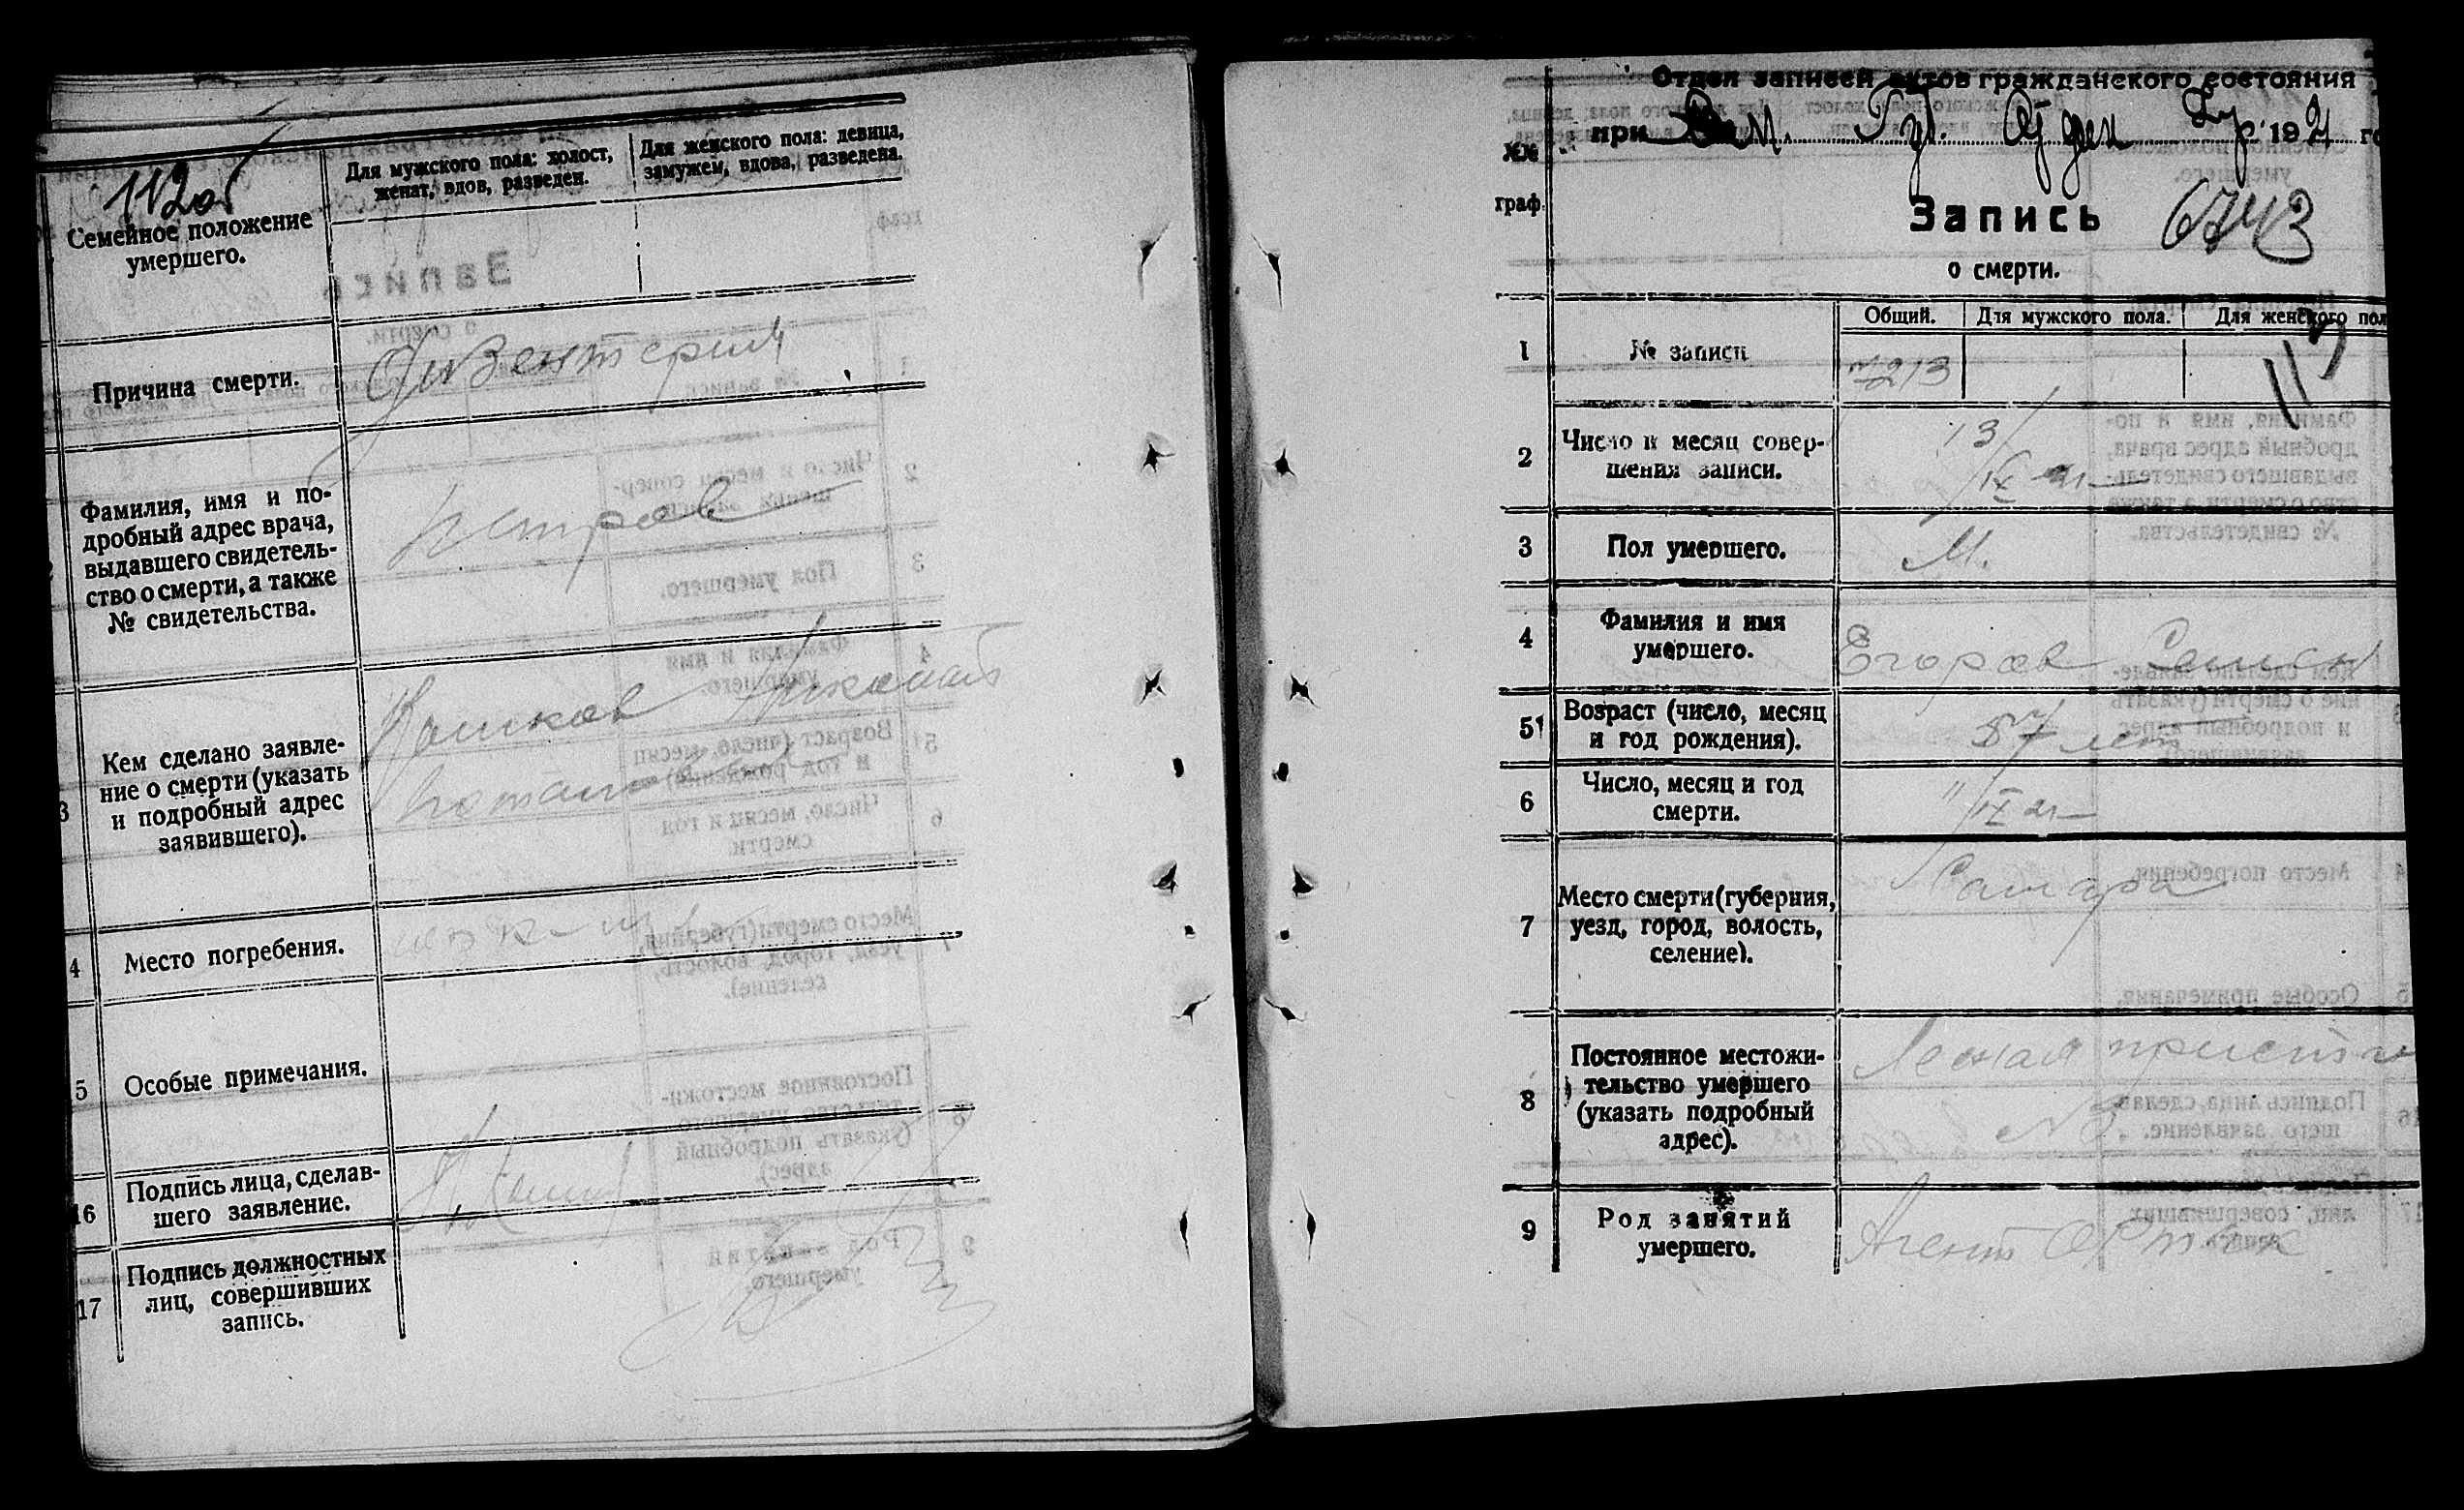 112об
Семейное положение
умершего.
Для мужского пола: холост,
женат, вдов, разведен.
Для женского пола: девица,
замужем, вдова, разведена.
Причина смерти.
Дизентерия
Фамилия, имя и по-
дробный адрес врача,
выдавшего свидетель-
ство о смерти, а также
№ свидетельства.
Петров
3
Кем сделано заявле-
ние о смерти (указать
и подробный адрес
заявившего).
4
Место погребения.
5
Особые примечания.
16
Подпись лица, сделав-
шего заявление.
17
Подпись должностных
лиц, совершивших
запись.
Отдел записей актов гражданского состояния
при
Губ.
192
№№
граф.
Запись
6743
о смерти.
Общий.
Для мужского пола.
Для женского пол
1
№ записи
7213
117
2
Число и месяц совер-
шения записи.
13/IX 21
3
Пол умершего.
М.
4
Фамилия и имя
умершего.
Егоров Семен
5
Возраст (число, месяц
и год рождения).
57 лет
6
Число, месяц и год
смерти.
11/IX 21
7
Место смерти (губерния,
уезд, город, волость,
селение).
Самара
8
Постоянное местожи-
тельство умершего
(указать подробный
адрес).
Лесная пристан
№3
9
Род занятий
умершего.
Агент